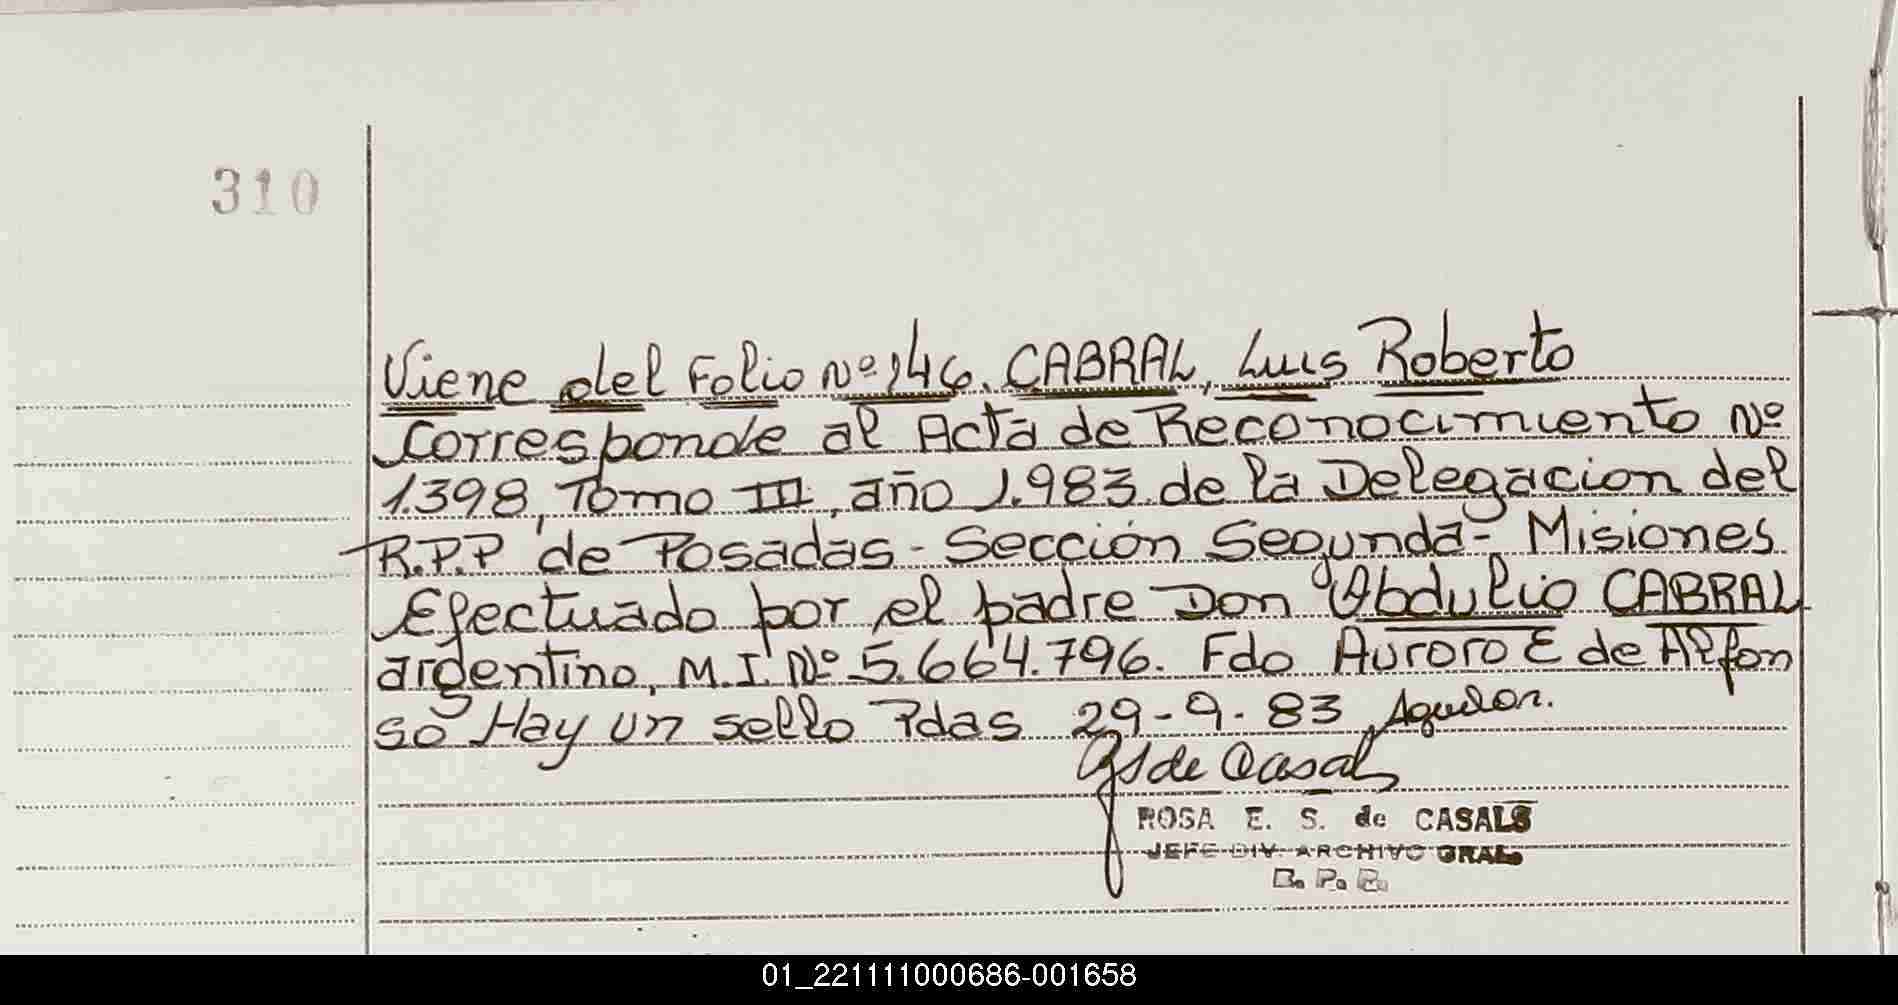 310
Viene del Folio Nº 146. CABRAL, Luis Roberto
Corresponde al Acta de Reconocimiento Nº
1.398, Tomo III, año 1.983. de la Delegacion del
R.P.P de Posadas - Sección Segunda - Misiones
Efectuado por el padre Don Obdulio CABRAL
argentino, M.I. Nº 5.664.796. Fdo Aurora E de Alfon
so Hay un sello Pdas 29-9-83 Aguilar.
de Casals
ROSA E. S. de CASALS
JEFE DIV. ARCHIVO GRAL.
R. P. P.
01_221111000686-001658